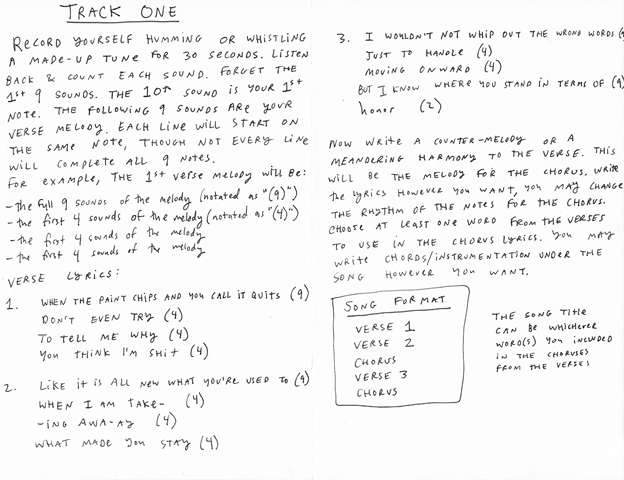 TRACK ONE
RECORD YOURSELF HUMMING OR WHISTLING
A MADE-UP TUNE FOR 30 SECONDS. LISTEN
BACK & COUNT EACH SOUND. FORGET THE
1st 9 SOUNDS. THE 10th SOUND IS YOUR 1st
NOTE. THE FOLLOWING 9 SOUNDS ARE YOUR
VERSE MELODY. EACH LINE WILL START ON
THE SAME NOTE, THOUGH NOT EVERY LINE
WILL COMPLETE ALL 9 NOTES.
For example, THE 1st VERSE MELODY WILL BE:
- the full 9 sounds of the melody (notated as "(9)")
- the first 4 sounds of the melody (notated as "(4)")
- the first 4 sounds of the melody
- the first 4 sounds of the melody
VERSE LYRICS:
1. WHEN THE PAINT CHIPS AND YOU CALL IT QUITS (9)
DON'T EVEN TRY (4)
TO TELL ME WHY (4)
YOU THINK I'M SHIT (4)
2. LIKE IT IS ALL NEW WHAT YOU'RE USED TO (9)
WHEN I AM TAKE- (4)
-ING AWA-AY (4)
WHAT MADE YOU STAY (4)
3. I WOULDN'T NOT WHIP OUT THE WRONG WORDS (9
JUST TO HANDLE (4)
MOVING ONWARD (4)
BUT I KNOW WHERE YOU STAND IN TERMS OF (9)
honor (2)
NOW WRITE A COUNTER-MELODY OR A
MEANDERING HARMONY TO THE VERSE. THIS
WILL BE THE MELODY FOR THE CHORUS. WRITE
THE LYRICS HOWEVER YOU WANT, YOU MAY CHANGE
THE RHYTHM OF THE NOTES FOR THE CHORUS.
CHOOSE AT LEAST ONE WORD FROM THE VERSES
TO USE IN THE CHORUS LYRICS. YOU MAY
WRITE CHORDS/INSTRUMENTATION UNDER THE
SONG HOWEVER YOU WANT.
SONG FORMAT
VERSE 1
VERSE 2
CHORUS
VERSE 3
CHORUS
THE SONG TITLE
CAN BE WHICHEVER
WORD(S) YOU INCLUDED
IN THE CHORUSES
FROM THE VERSES